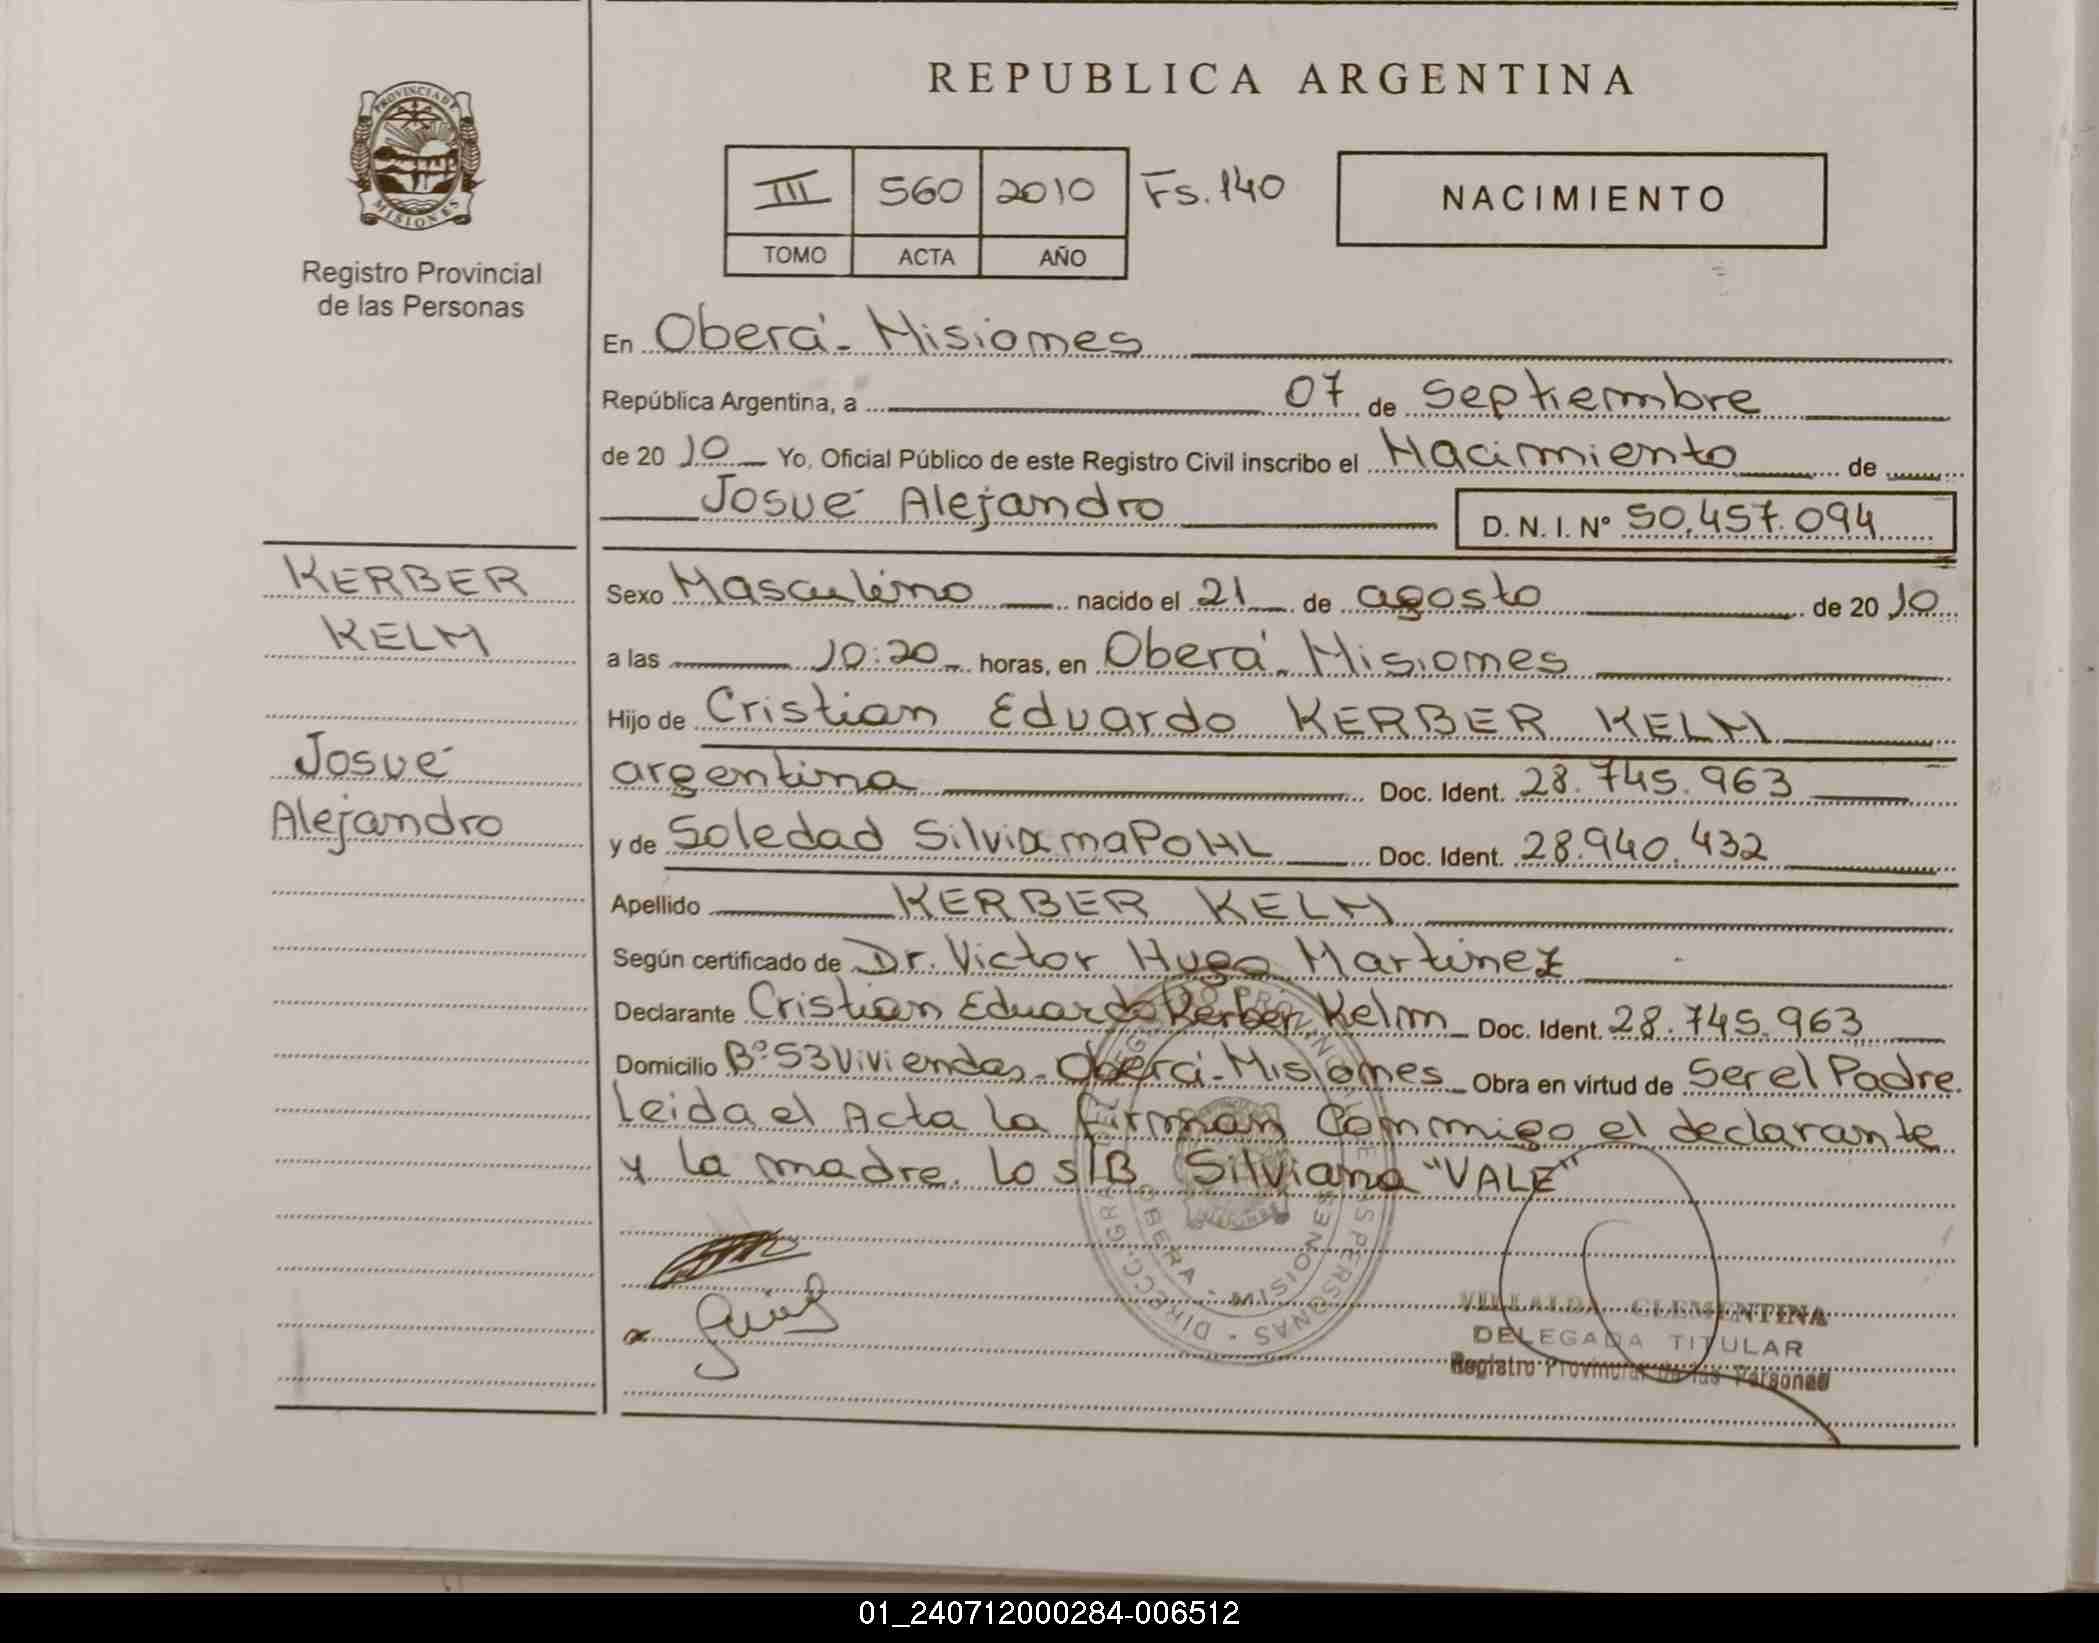 REPUBLICA ARGENTINA
PROVINCIA DE MISIONES
Registro Provincial
de las Personas
III 560 2010 Fs. 140
TOMO ACTA AÑO
NACIMIENTO
En Oberá - Misiones
República Argentina, a 07 de Septiembre
de 20 10 Yo, Oficial Público de este Registro Civil inscribo el Nacimiento de
Josué Alejandro D. N. I. N° 50.457.094
KERBER
KELM
Josué
Alejandro
Sexo Masculino nacido el 21 de agosto de 20 10
a las 10:20 horas, en Oberá - Misiones
Hijo de Cristian Eduardo KERBER KELM
argentina Doc. Ident. 28.745.963
y de Soledad Silviana POHL Doc. Ident. 28.940.432
Apellido KERBER KELM
Según certificado de Dr. Victor Hugo Martinez
Declarante Cristian Eduardo Kerber Kelm Doc. Ident. 28.745.963
Domicilio B° 53 Viviendas - Oberá - Misiones Obra en virtud de Ser el Padre.
Leida el Acta la firman Conmigo el declarante
y la madre. Lo s/B Silviana "VALE"
OBERA - MISIONES
VILLALBA CLEMENTINA
DELEGADA TITULAR
Registro Provincial de las Personas
01_240712000284-006512